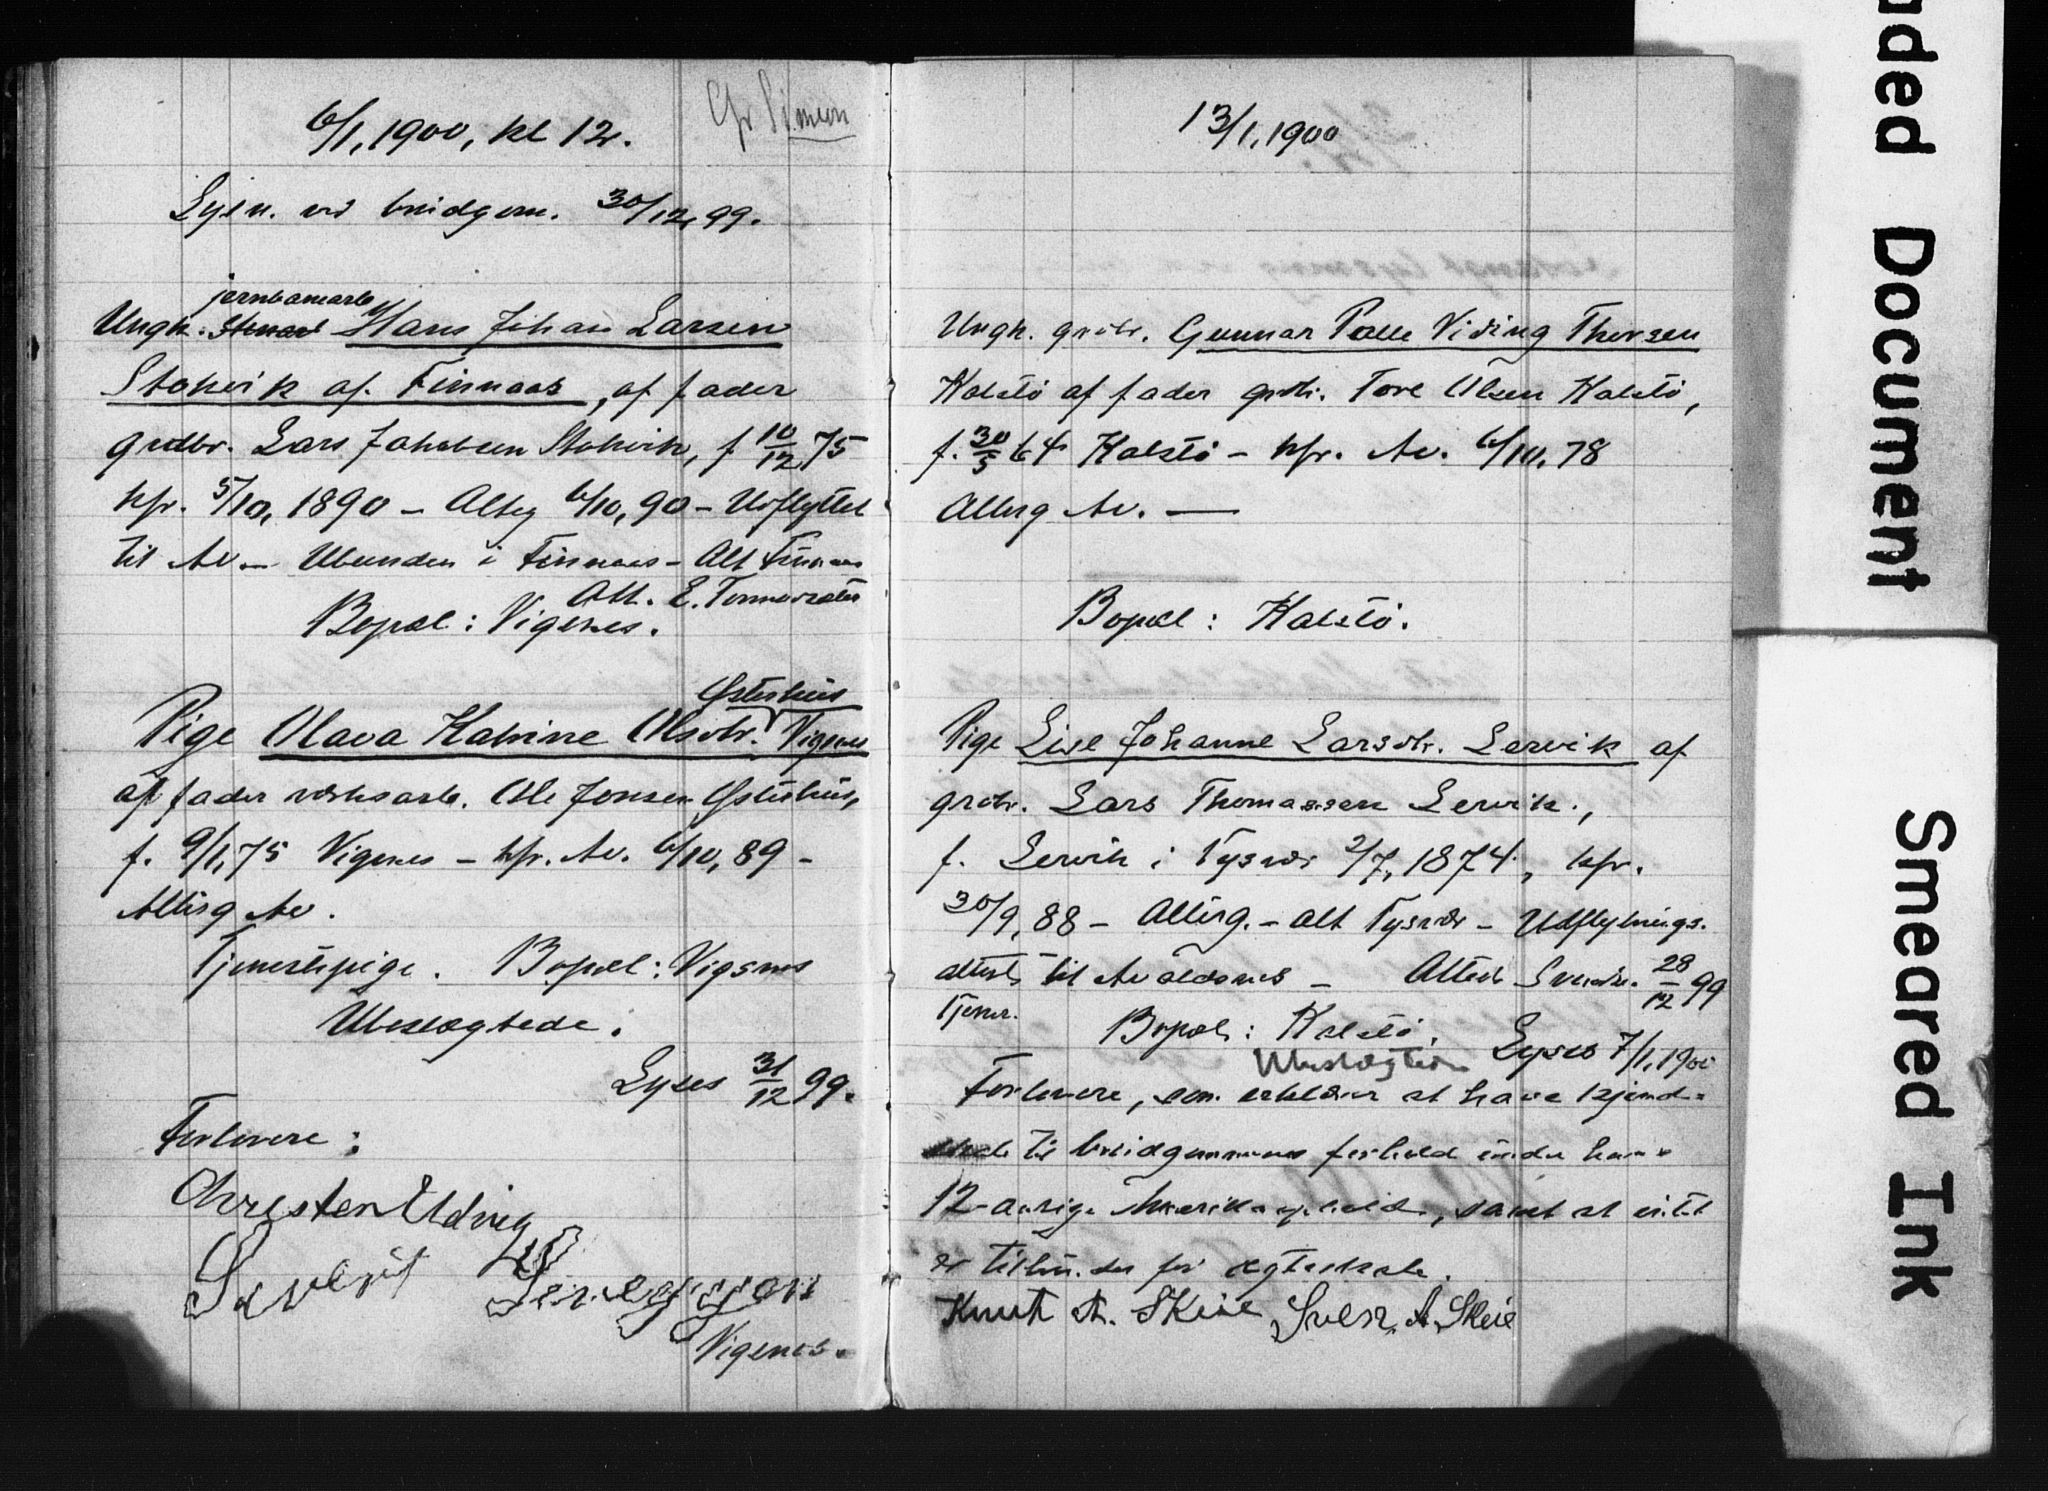 6/1, 1900, kl 12.
Lysn. ved bruidgom. 30/12, 99.
jernbanearb
Ungk. Hans Johan Larsen
Stokvik af Finnaas, af fader
grdbr. Lars Jakobsen Stokvik, f 10/12 75
kfr. 5/10, 1890 – Altrg 6/10, 90 – Udflyttet
til Av – Ubunden i Finnaas – Att Finnaas
Att. E.
Bopæl: Vigsnes.
Østerhus
Pige Olava Katrine Olsdtr. Vigsnes
af fader værksarb. Ole Jonsen Østerhus,
f. 9/1, 75 Vigsnes – kfr. Av. 6/10, 89 –
Altirg Av.
Tjenestepige. Bopæl: Vigsnes
Ubeslægtede.
Lyses 31/12 99.
Forlovere:
Vigsnes.
13/1, 1900
Ungk. grdbr. Gunnar Palle Viding Thorsen
Kalstö af fader grdbr. Tore Olsen Kalstö,
f. 30/5 64 Kalstö – kfr. Av. 6/10, 78
Altirg Av. —
Bopæl: Kalstö.
Pige Lise Johanne Larsdtr. Lervik af
grdbr. Lars Thomassen Lervik,
f. Lervik i Tysvær 2/7, 1874, kfr.
30/9, 88 – Altirg. – alt Tysvær – Udflytnings.
attest til Avaldsnes – Attest 28/12 99
Tjener.
Bopæl: Kalstö. Lyses 7/1, 1900
Ubeslægtede
Forlovere, som erklærer at have kjend-
skab til bruidgommens forhold under hans
12-aarige Amerikaophold, samt at intet
er til hinder for ægteskab.
Knut A. Skeie Sven A. Skeie
nded Document
Smeared Ink